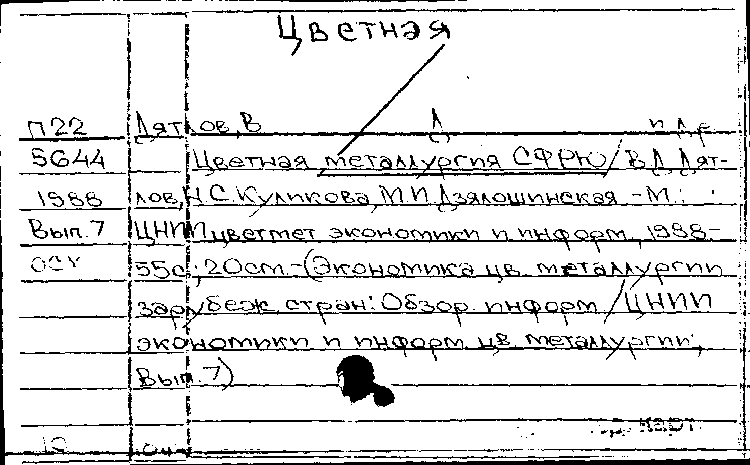 Цветная
П22 Дятлов, В Д и др
5644 Цветная металлургия СФРЮ / В Д Дят-
1988 лов, Н.С. Куликова, М.И Дзялошинская -М.:
Вып.7 ЦНИИцветмет экономики и информ, 1988.-
ОСУ 55с; 20см.-(Экономика цв. металлургии
зарубеж. стран: Обзор. информ / ЦНИИ
экономики и информ. цв. металлургии;
Вып.7)
карт.